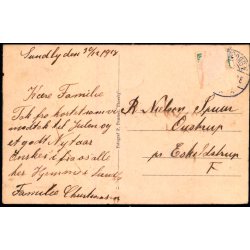 Sundby den 30/12 1918
Kære Familie
Tak for kortet som vi
modtok til Julen og
et godt Nytaar
Ønskes i fra os alle
her Hjemme i Sundby
Familien Christensen
R Nielsen, Spuur
Oustrup
pr Eskildstrup
F